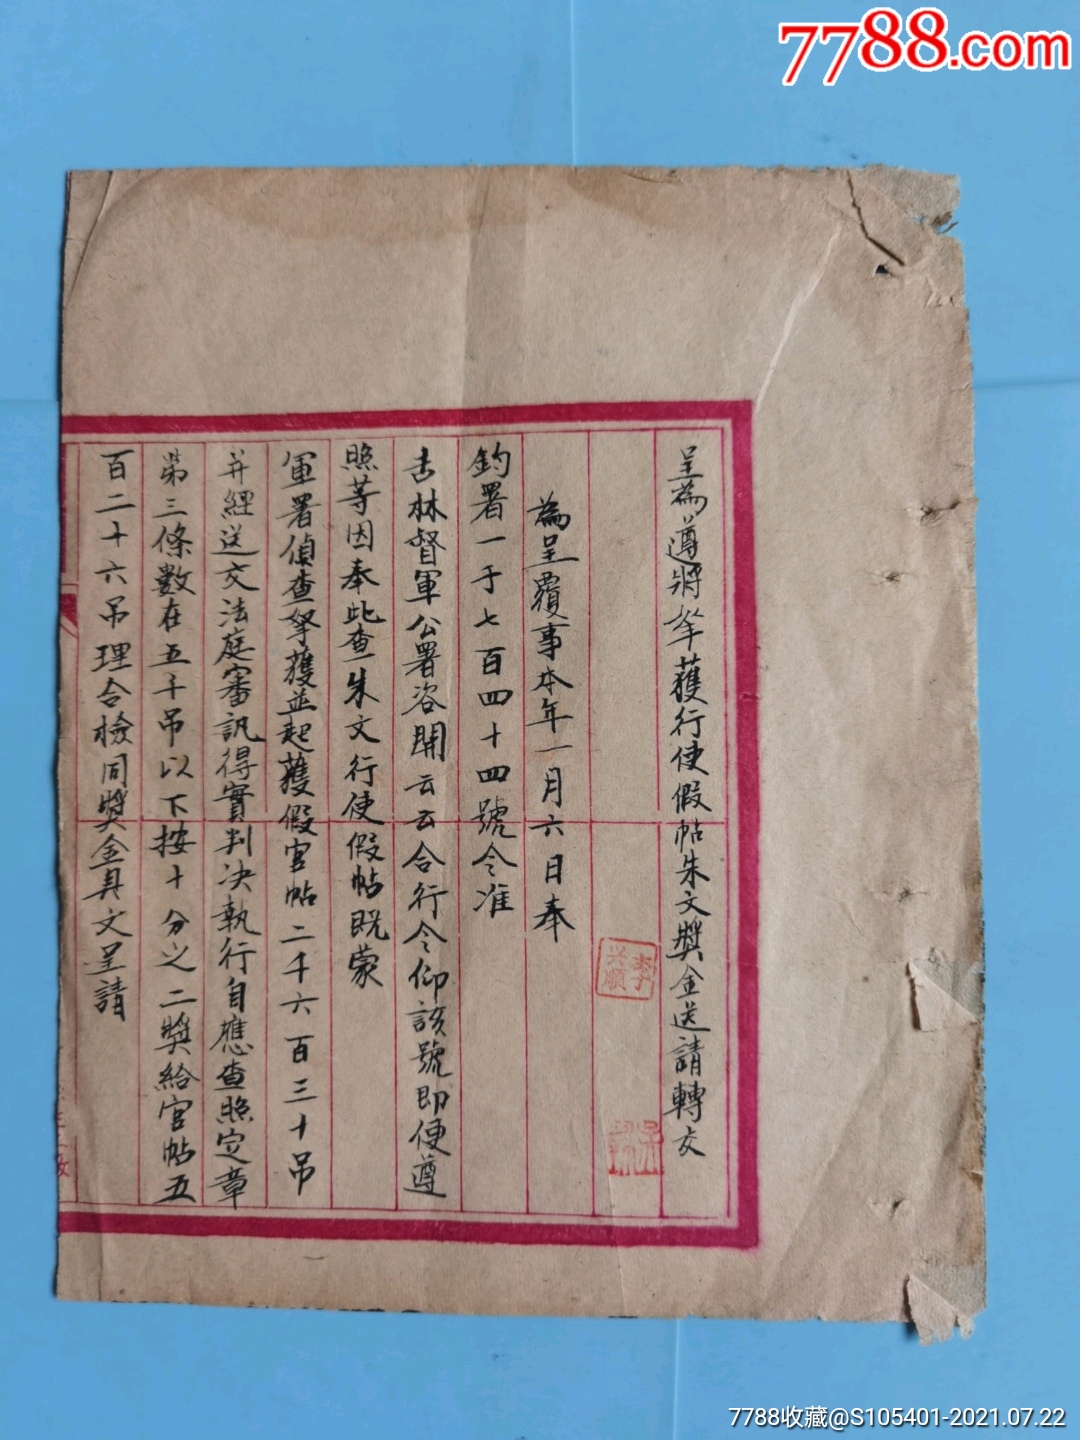 7788.com
呈為遵將拏獲行使假帖朱文獎金送請轉交
為呈覆事本年一月六日奉
鈞署一千七百四十四號令准
吉林督軍公署咨開云云合行令仰該號即便遵
照等因奉此查朱文行使假帖既蒙
軍署偵查拏獲並起獲假官帖二千六百三十吊
并經送交法庭審訊得實判決執行自應查照定章
第三條數在五千吊以下按十分之二獎給官帖五
百二十六吊理合檢同獎金具文呈請
李兴順
7788收藏@S105401-2021.07.22